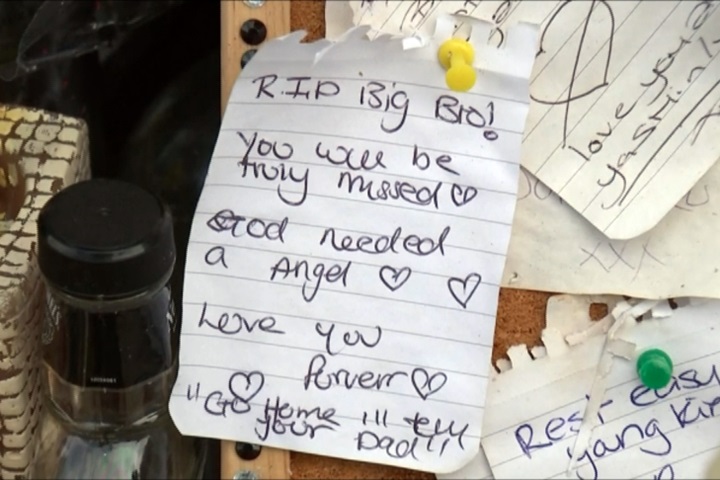 R.I.P Big Bro!
You will be
truly missed ♡
God needed
a Angel ♡ ♡
Love you
forverr ♡
♡
"Go Home i'll tell
your Dad!!
love you a
yasmin
xxx
Rest easy
yang kin